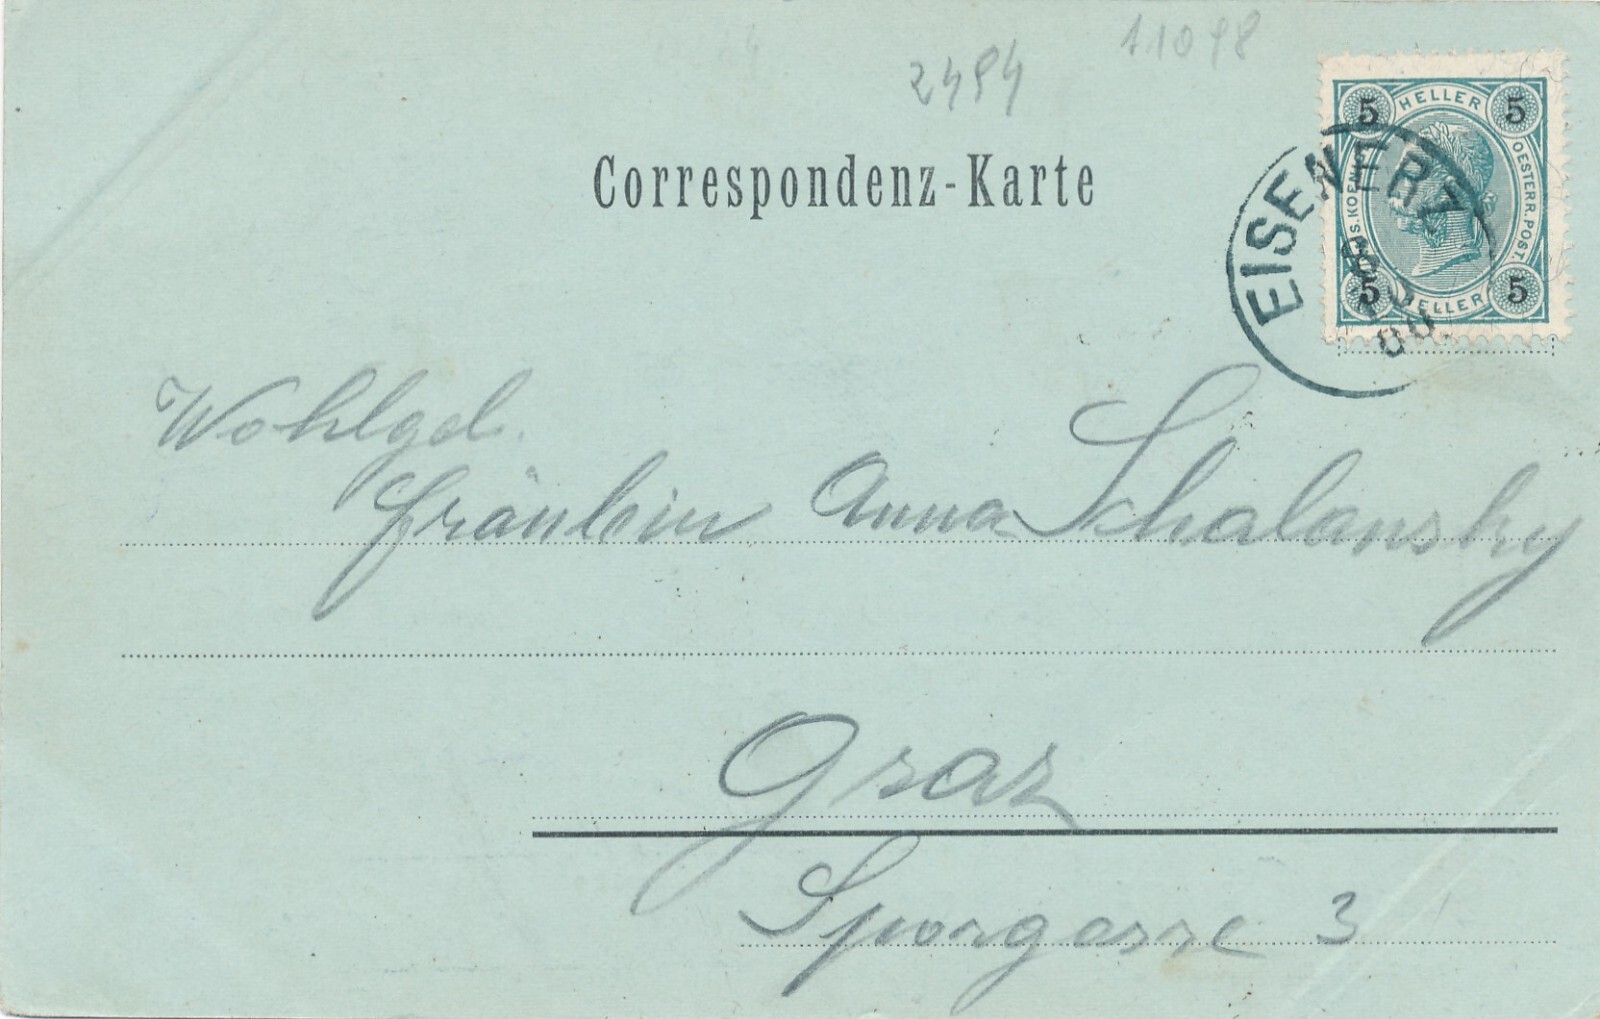 11098
2494
Correspondenz-Karte
5 HELLER 5
KAIS.KOENIGL.
OESTERR.POST
5 HELLER 5
EISENERZ
00
Wohlgel.
Fräulein Anna Schalansky
Graz
Sporgasse 3